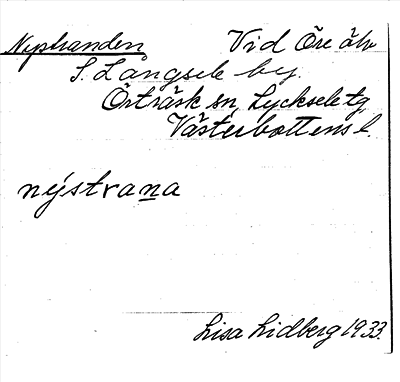 Nystranden Vid Öre älv
S. Långsele by.
Örträsk sn, Lycksele tg,
Västerbottens l.
nýstrana
Lisa Lidberg 1933.